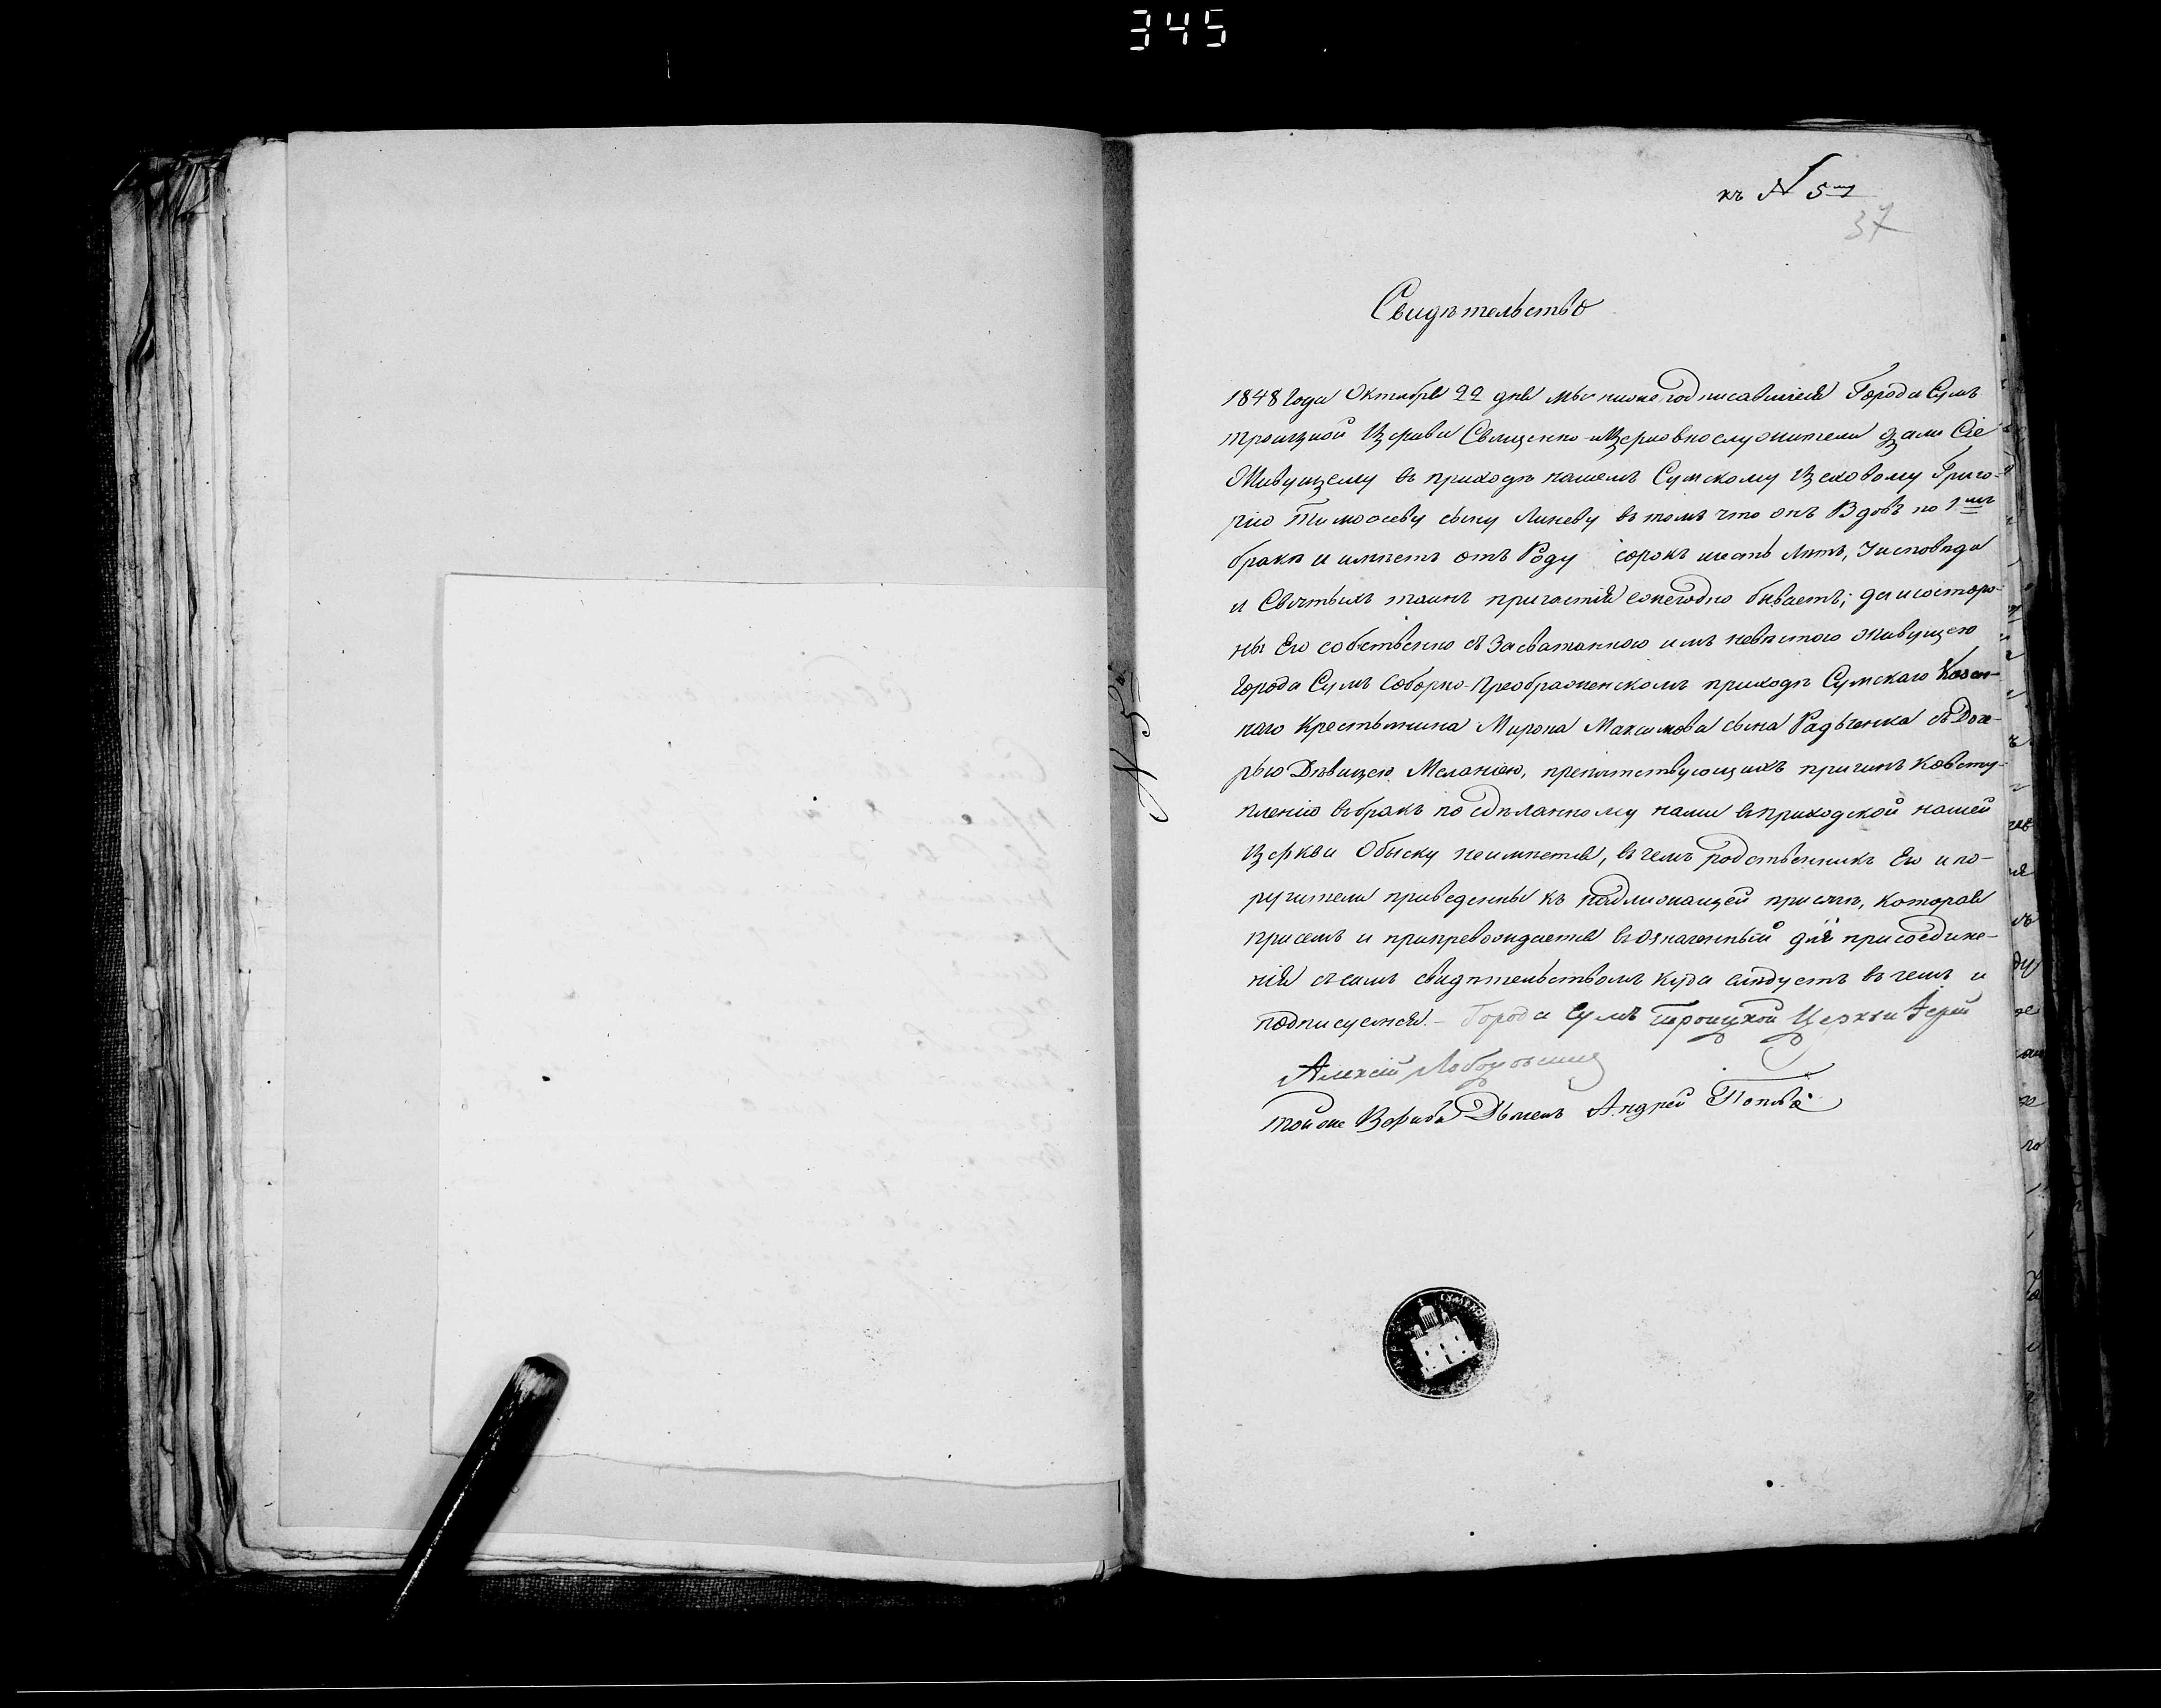 345
къ N 5му
37
Свидѣтельство
1848 года Октября 22 дня мы нижеподписавшіеся Города Сумъ
троицкой Церкви Священно-и Церковнослужители дали Сіе
Живущему въ приходѣ нашемъ Сумскому Цеховому Григо-
рію Тимофееву сыну Линеву въ томъ что онъ Вдовъ по 1мъ
бракѣ и имѣетъ отъ Роду сорокъ шесть лѣтъ, Уисповѣди
и Святыхъ таинъ причастія ежегодно бываетъ; да и состоро-
ны Его собственно съ Засватанною имъ невѣстою живущею
города Сумъ Соборно-Преображенскомъ приходѣ Сумскаго Казен-
наго Крестьянина Мирона Максимова сына Радьченка съ Доче-
рью Дѣвицею Меланіею, препятствующихъ причинъ Ковсту-
пленію въбракъ по сдѣланному нами въприходской нашей
Церкви Обыску неимѣется, въ чемъ родственникъ Его и по-
ручители приведенны къ надлежащей присягѣ, которая
присемъ и препревождается въозначенный для присоедине-
нія съсимъ свидѣтельствомъ куда слѣдуетъ въ чемъ и
подписуемся. - Города Сумъ Троицкой Церкви Іерей
Алексій
тойже Дьячекъ Андрей Поповъ
N 5й